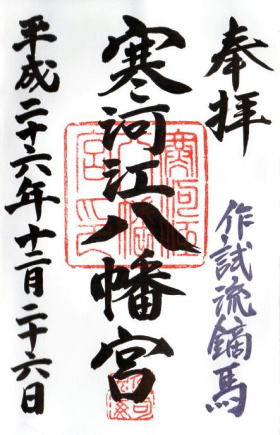 奉拝
作試流鏑馬
寒河江八幡宮
平成二十六年十二月二十六日